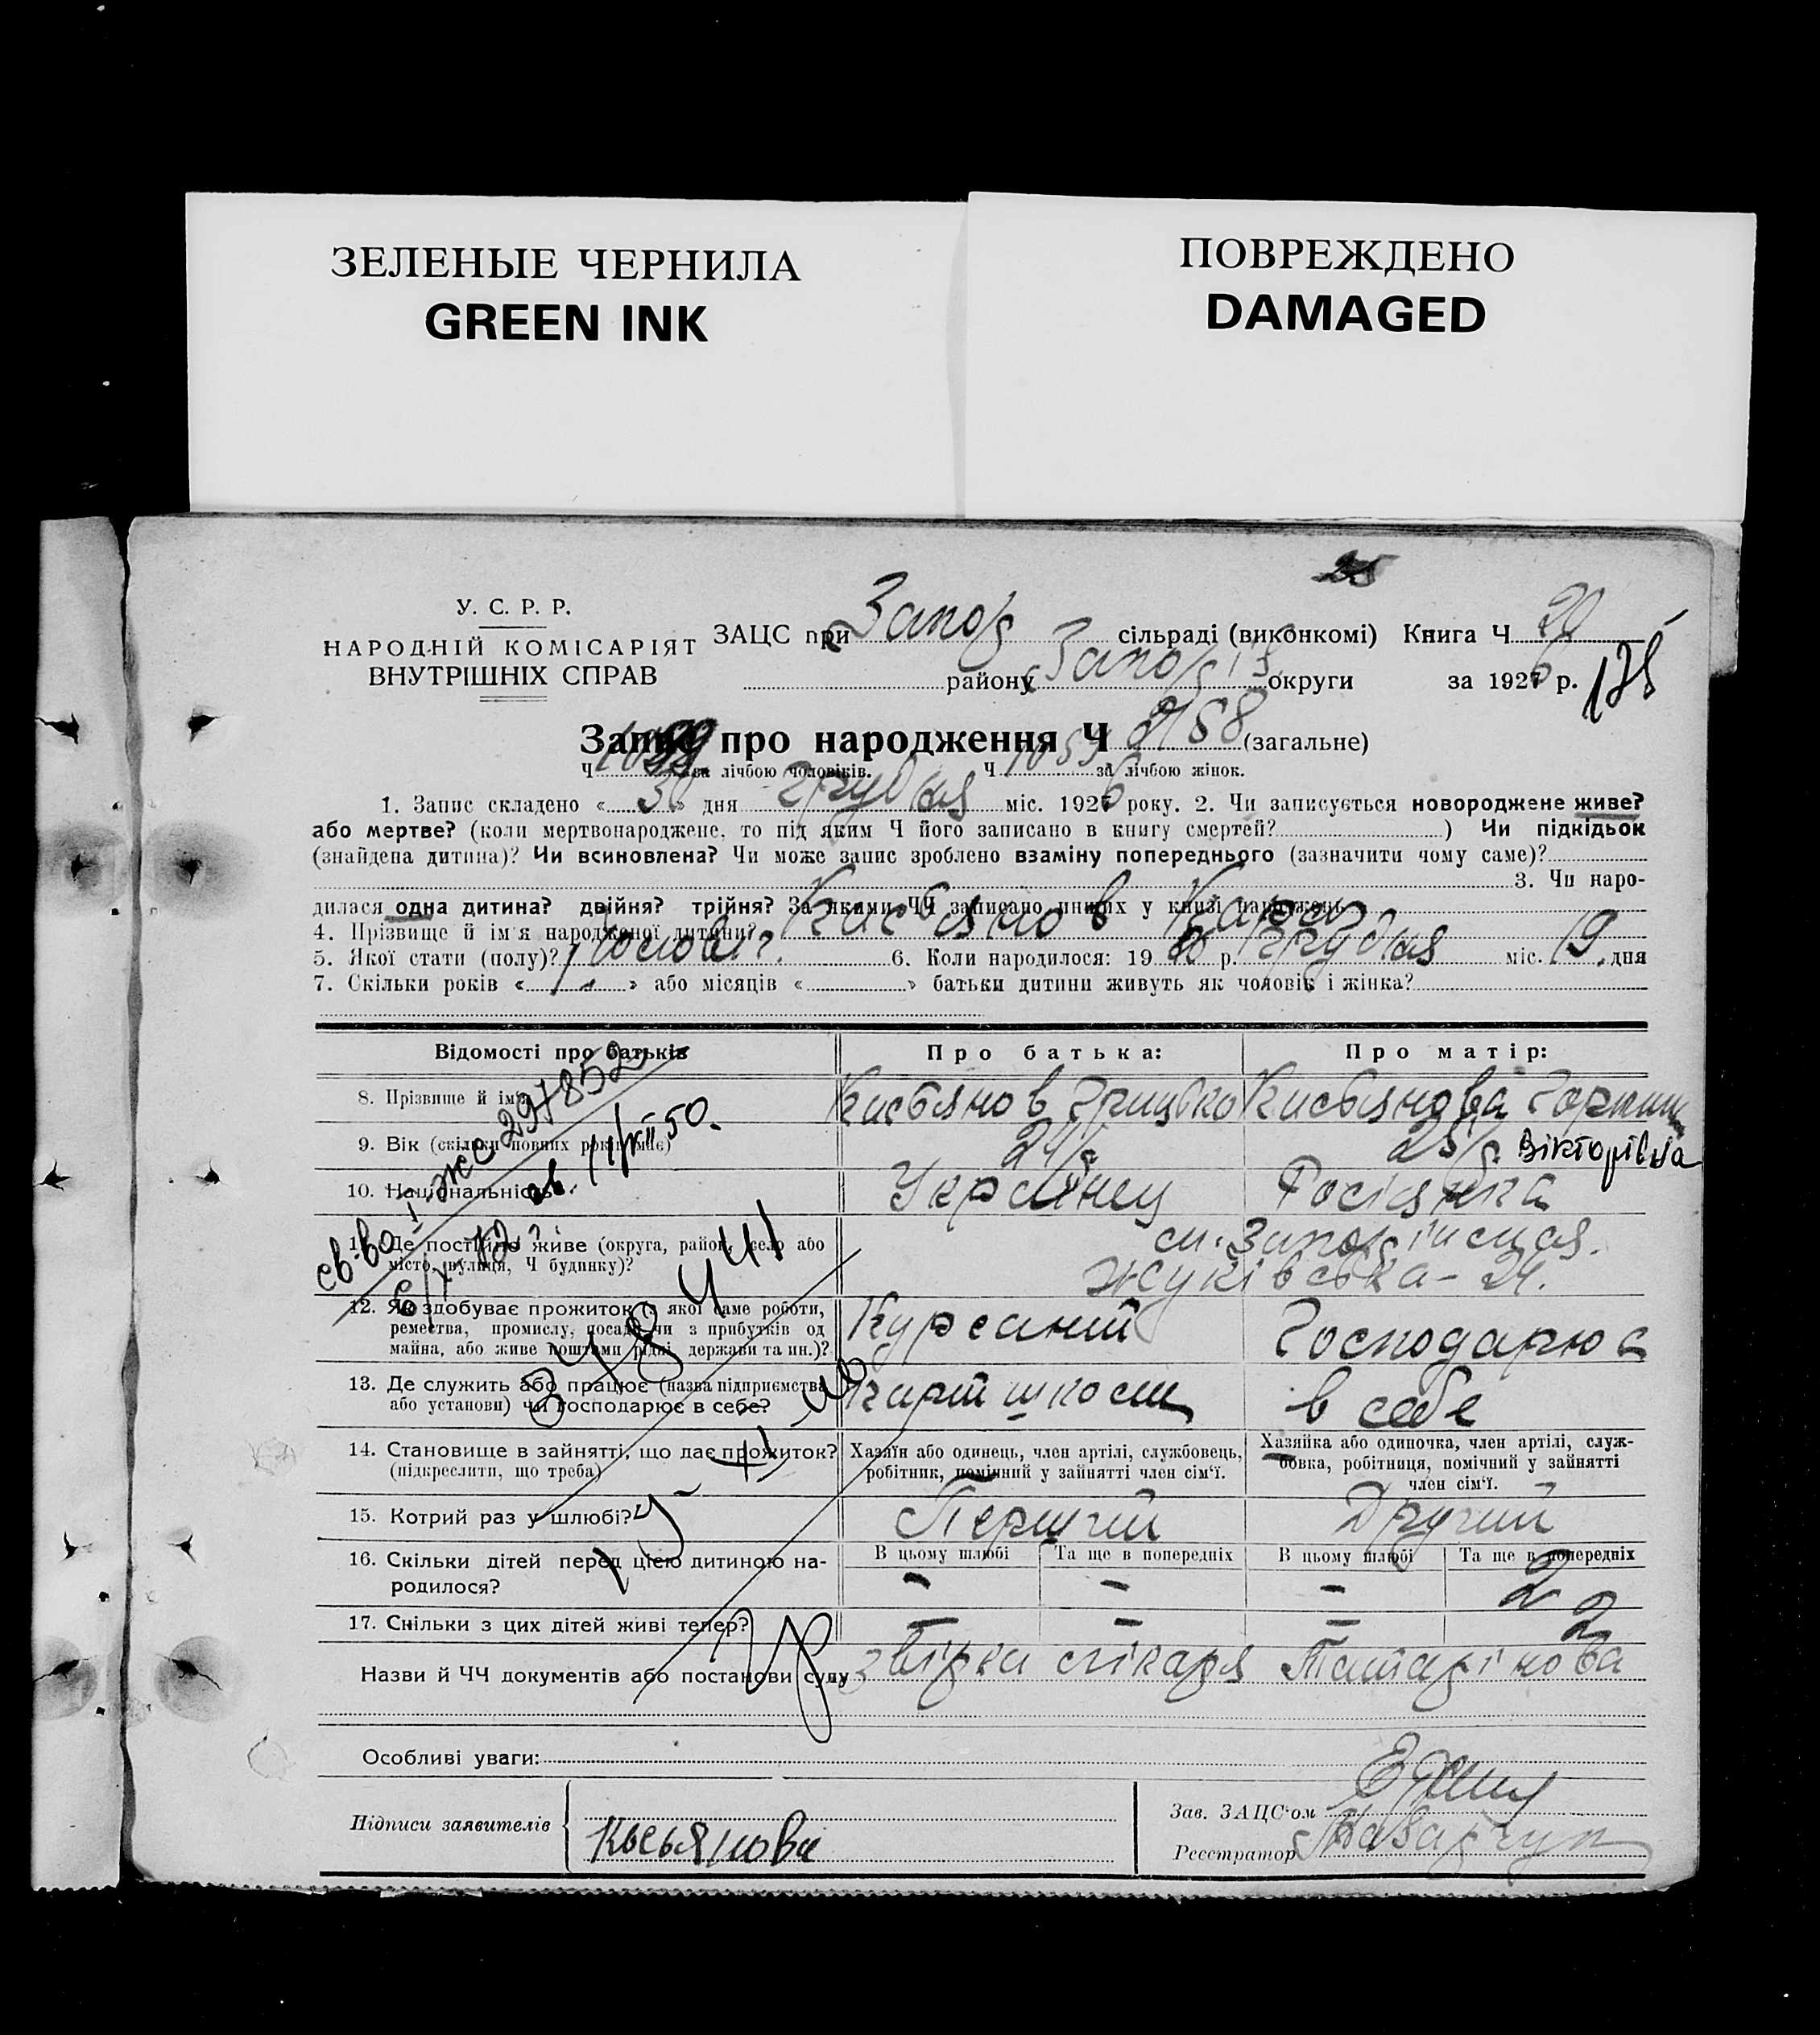 ЗЕЛЕНЫЕ ЧЕРНИЛА
GREEN INK
ПОВРЕЖДЕНО
DAMAGED
У. С. Р. Р.
НАРОДНІЙ КОМІСАРІЯТ
ВНУТРІШНІХ СПРАВ
ЗАЦС при Запор сільраді (виконкомі) Книга Ч 20
району Запоріз округи за 1926 р.
178
Запис про народження Ч 2158 (загальне)
Ч за лічбою чоловіків. Ч 1059 за лічбою жінок.
1. Запис складено « 30 » дня грудня міс. 1926 року. 2. Чи записується новороджене живе?
або мертве? (коли мертвонароджене, то під яким Ч його записано в книгу смертей? ) Чи підкідьок
(знайдена дитина)? Чи всиновлена? Чи може запис зроблено взаміну попереднього (зазначити чому саме)?
3. Чи наро-
дилася одна дитина? двійня? трійня? За якими ЧЧ записано инших у книзі народжень
4. Прізвище й ім'я народженої дитини? Кисьянов Карл
5. Якої стати (полу)? чоловіч. 6. Коли народилося: 19 26 р. грудня міс. 19 дня
7. Скільки років « 1 » або місяців « » батьки дитини живуть як чоловік і жінка?
Відомості про батьків
Про батька:
Про матір:
8. Прізвище й ім'я
Кисьянов Грицько
Кисьянова Горпина
Вікторівна
9. Вік (скільки повних років має)
24 р
25 р.
10. Національність
Українец
Росіянка
11. Де постійно живе (округа, район, село або
місто, вулиця, Ч будинку)?
Жуківська - 24.
12. Як здобуває прожиток (з якої саме роботи,
ремества, промислу, посади чи з прибутків од
майна, або живе коштами рідні, держави та ин.)?
Курсаний
Господарює
13. Де служить або працює (назва підприємства
або установи) чи господарює в себе?
Парт школи
в себе
14. Становище в зайнятті, що дає прожиток?
(підкреслити, що треба)
Хазяїн або одинець, член артілі, службовець,
робітник, помічний у зайнятті член сім'ї.
Хазяйка або одиночка, член артілі, служ-
бовка, робітниця, помічний у зайнятті
член сім'ї.
15. Котрий раз у шлюбі?
Перший
Другий
16. Скільки дітей перед цією дитиною на-
родилося?
В цьому шлюбі
Та ще в попередніх
В цьому шлюбі
Та ще в попередніх
- - - 2
17. Скільки з цих дітей живі тепер?
- - - 2
Назви й ЧЧ документів або постанови суду
звірка лікаря Татарінова
св-во І-жс 297852
ав. 11/XII 50.
Особливі уваги:
Підписи заявителів
Кысьянова
Зав. ЗАЦС'ом
Реєстратор